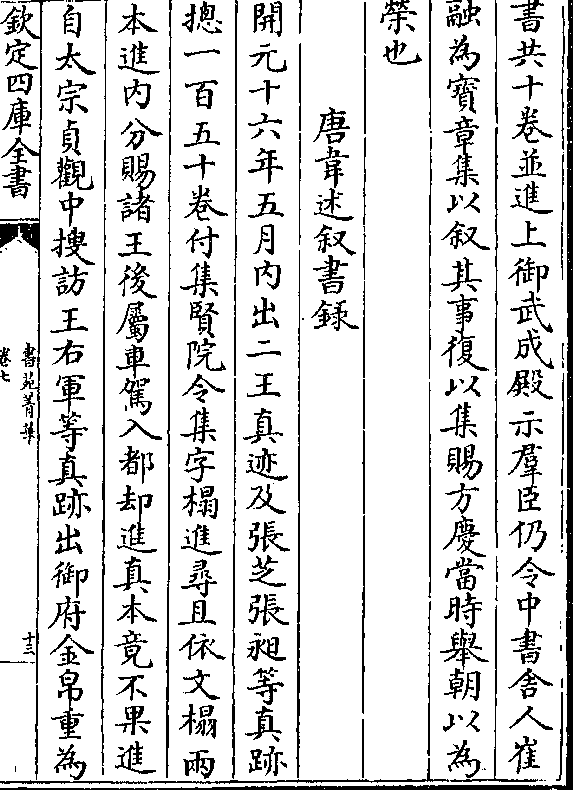 書共十卷並進上御武成殿示羣臣仍令中書舍人崔
融為寶章集以叙其事復以集賜方慶當時舉朝以為
榮也
唐韋述叙書録
開元十六年五月内出二王真迹及張芝張昶等真跡
摠一百五十卷付集賢院令集字榻進尋且依文榻兩
本進内分賜諸王後屬車駕入都却進真本竟不果進
自太宗貞觀中搜訪王右軍等真跡出御府金帛重為
欽定四庫全書
書苑菁華
卷七
十三